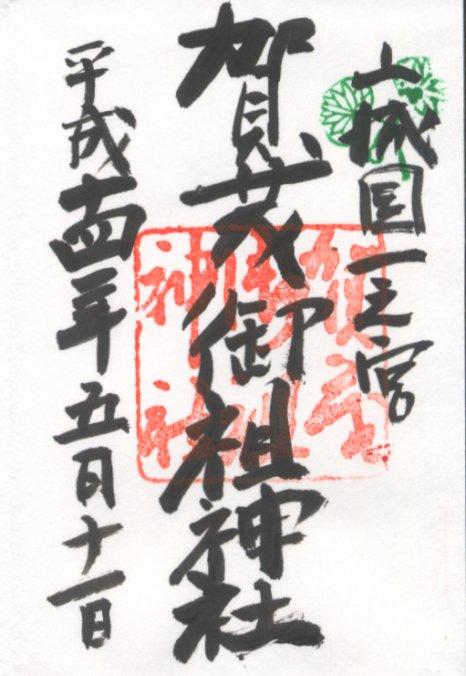 山城国一之宮
賀茂御祖神社
平成十四年五月十一日
賀茂
神社